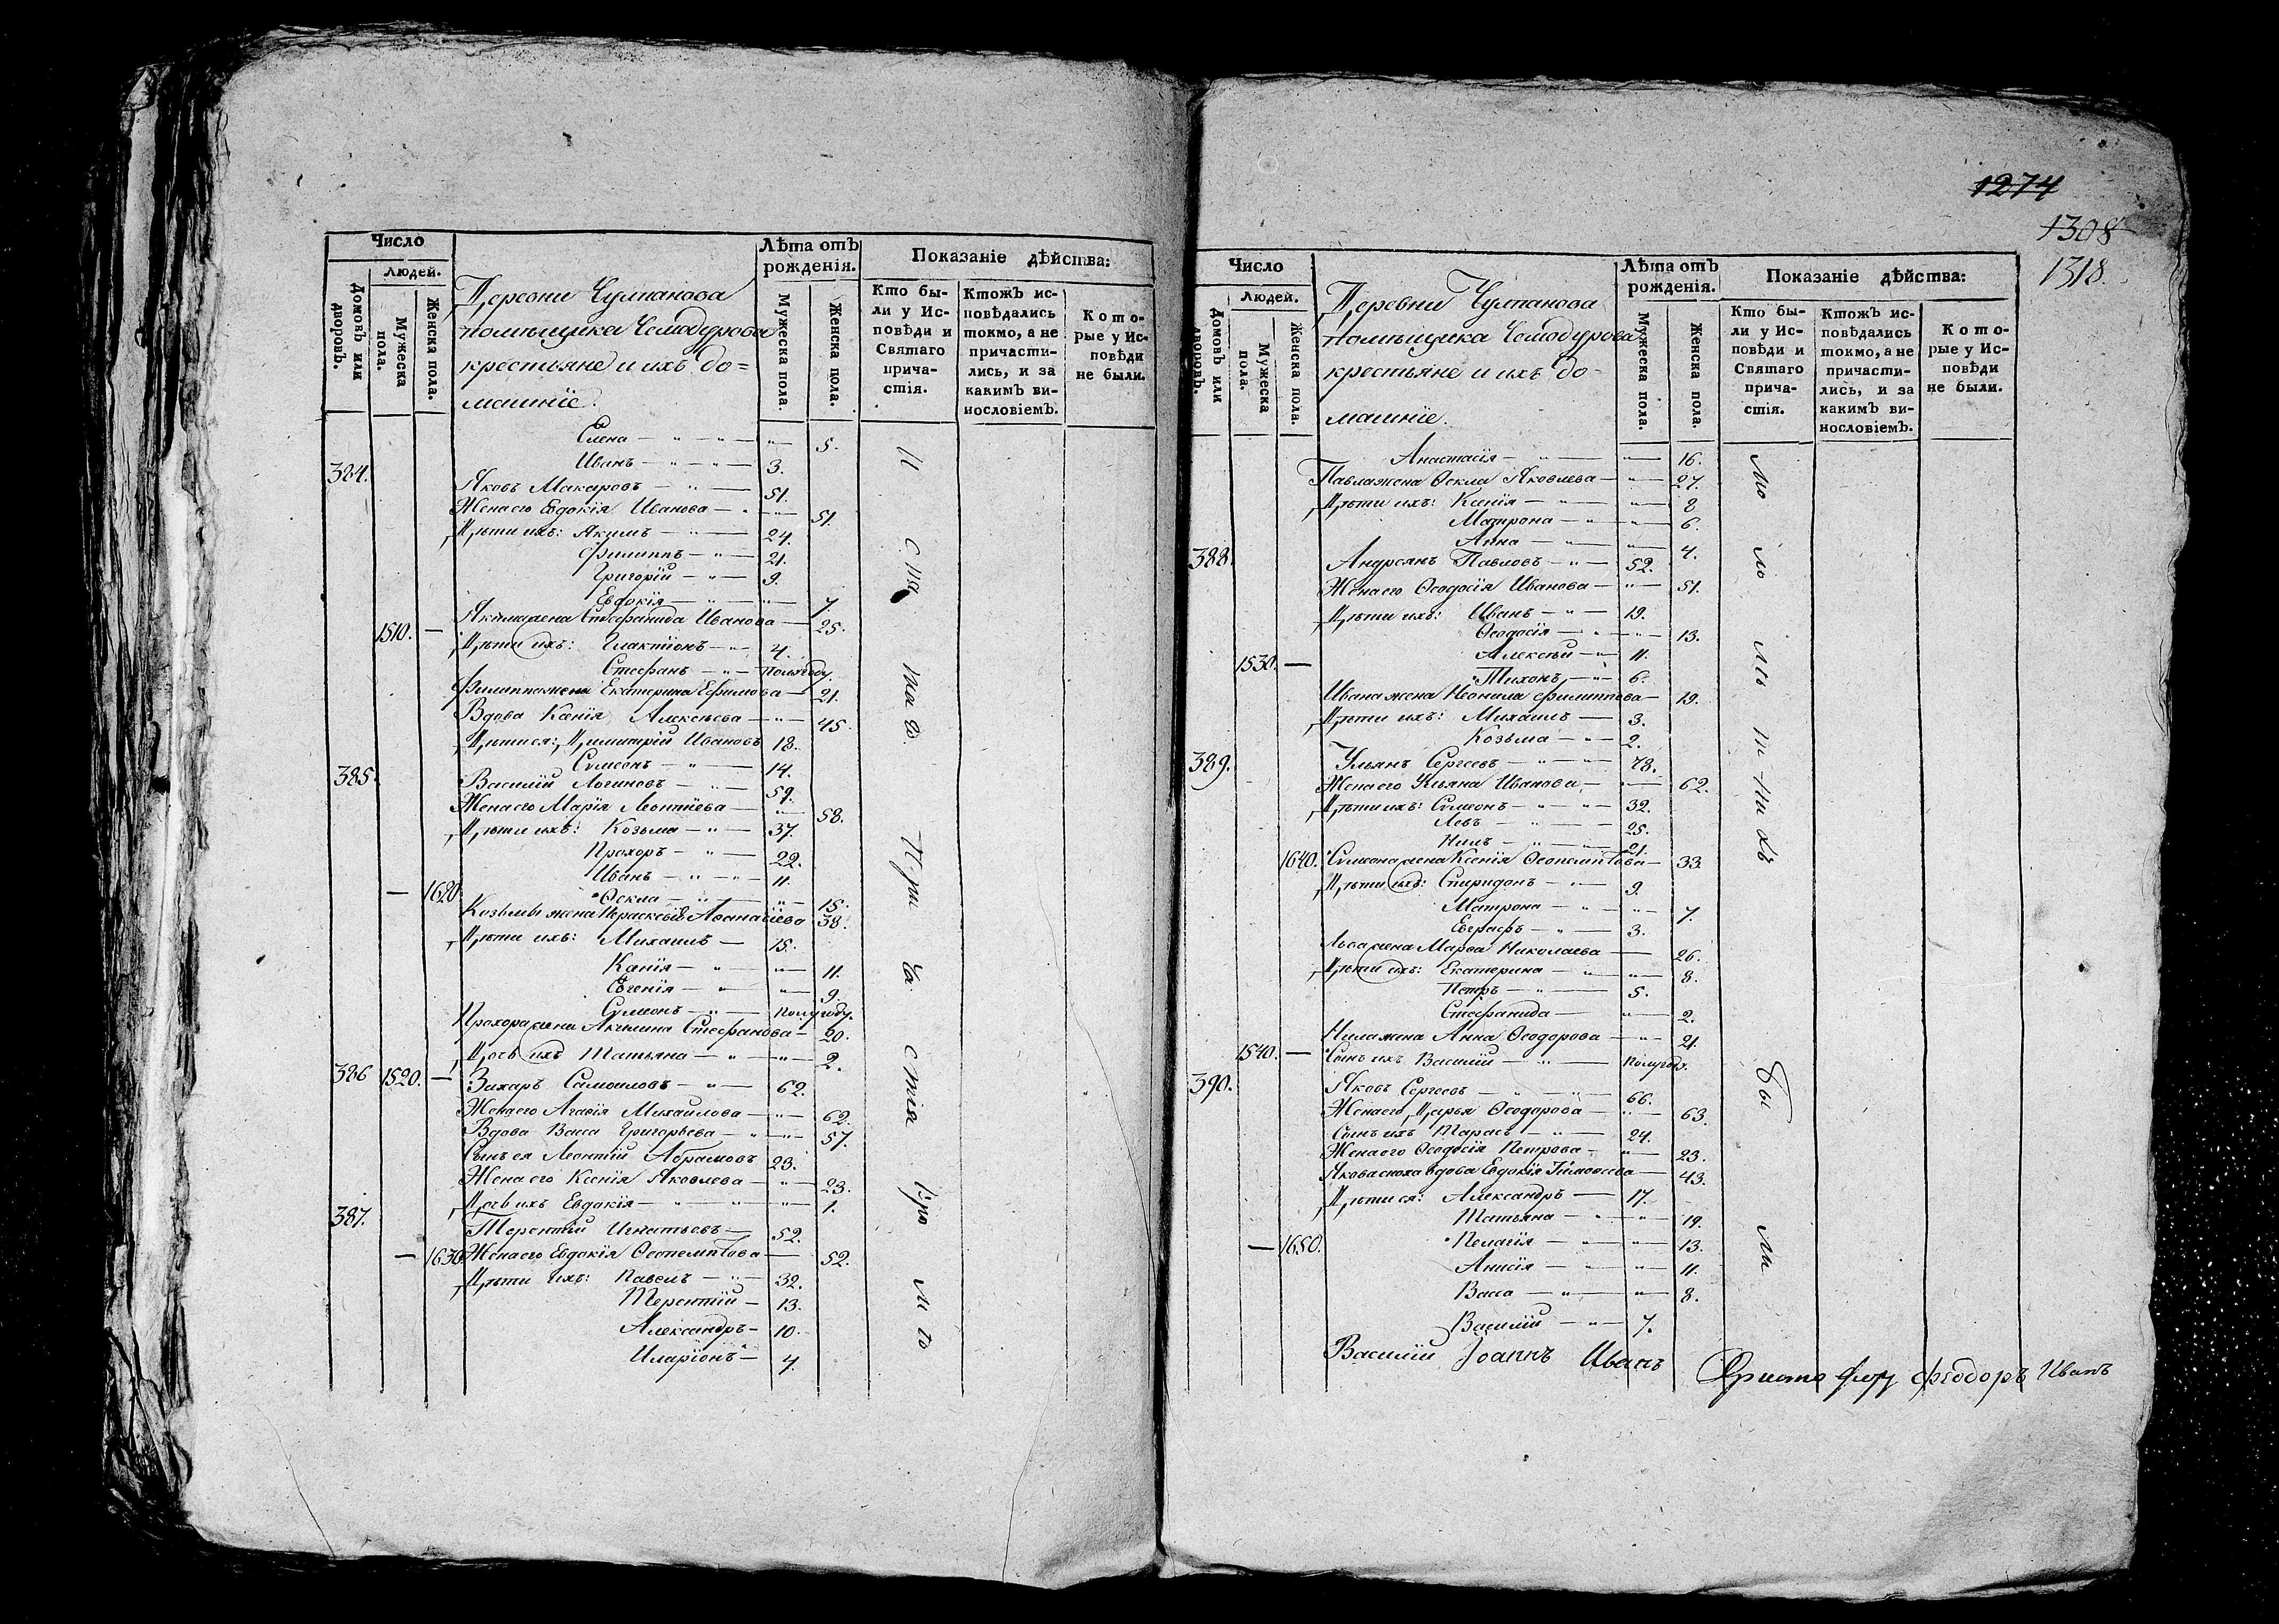 Число
Людей.
Домовъ или дворовъ.
Мужеска пола.
Женска пола.
Деревни Чулпанова
помѣщика Чемодурова
крестьяне и ихъ до=
машніе.
Лѣта отъ рожденія.
Мужеска пола.
Женска пола.
Показаніе дѣйства:
Кто бы-
ли у Ис-
повѣди и
Святаго
прича-
стія.
Ктожъ ис-
повѣдались
токмо, а не
причасти-
лись, и за
какимъ ви-
нословіемъ.
Кото-
рые у Ис-
повѣди
не были.
Елена — " — " — 5.
Иванъ — " — " — 3.
384. Яковъ Макаровъ — " — 51.
Жена его Евдокія Иванова — " — 51.
Дѣти ихъ: Якимъ — " — 24.
Филиппъ — " — 21.
Григорій — " — 9.
Евдокія — " — " — 7.
Якима жена Стефанида Иванова — 25.
1510. — Дѣти ихъ: Галактіонъ — " — 4.
Стефанъ — " — полугоду.
Филиппа жена Екатерина Ефимова — 21.
Вдова Ксенія Алексѣева — " — 45.
Дѣти ея: Димитрій Ивановъ 18.
Сѵмеонъ — " — 14.
385. Василій Логиновъ — " — 59.
Жена его Марія Леонтіева — " — 58.
Дѣти ихъ: Козьма — " — 37.
Прохоръ — " — 22.
Иванъ — " — " — 11.
— 1620. Ѳекла — " — " — 15.
Козьмы жена Параскева Аѳанасіева 38.
Дѣти ихъ: Михаилъ — 15.
Ксенія — " — " — 11.
Евгенія — " — " — 9.
Сѵмеонъ — " — полугоду.
Прохора жена Акилина Стефанова — 20.
Дочь ихъ Татьяна — " — " — 2.
386 1520. — Захаръ Самоиловъ — " — 62.
Жена его Агаѳія Михайлова — " — 62.
Вдова Васса Григорьева — " — " — 57.
Сынъ ея Леонтій Абрамовъ 23.
Жена его Ксенія Яковлева — " — 23.
Дочь ихъ Евдокія — " — " — 1.
387. Терентій Игнатьевъ — 52.
— 1630. Жена его Евдокія Ѳеопемптова — 52.
Дѣти ихъ: Павелъ — " — 32.
Терентій — 13.
Александръ — 10.
Иларіонъ — 4.
И
спо
вѣ
При
ча
стія
1274
1308
1318.
Число
Людей.
Домовъ или дворовъ.
Мужеска пола.
Женска пола.
Деревни Чулпанова
помѣщика Чемодурова
крестьяне и ихъ до-
машніе.
Лѣта отъ рожденія.
Мужеска пола.
Женска пола.
Показаніе дѣйства:
Кто бы-
ли у Ис-
повѣди и
Святаго
прича-
стія.
Ктожъ ис-
повѣдались
токмо, а не
причасти-
лись, и за
какимъ ви-
нословіемъ.
Кото-
рые у Ис-
повѣди
не были.
Анастасія — " — " — 16.
Павла жена Ѳекла Яковлева — " — 27.
Дѣти ихъ: Ксенія — " — " — 8
Матрона — " — " — 6.
Анна — " — " — 4.
388. Андреянъ Павловъ — " — 52.
Жена его Ѳеодосія Иванова — " — 51.
Дѣти ихъ: Иванъ — " — 19.
Ѳеодосія — " — " — 13.
Алексѣй — " — 11.
1530. — Тихонъ — " — 6.
Ивана жена Неонила Филиппова — 19.
Дѣти ихъ: Михаилъ — 3.
Козьма — " — 2.
389. Ульянъ Сергеевъ — " — " — 78.
Жена его Ульяна Иванова — " — 62.
Дѣти ихъ: Сѵмеонъ — " — " — 32.
Левъ — " — 25.
Нилъ — " — " — 21.
1640. Сѵмеона жена Ксенія Ѳеопемптова — 33.
Дѣти ихъ: Спиридонъ — " — 9.
Матрона — " — " — 7.
Евграфъ — " — 3.
Льва жена Марѳа Николаева — 26.
Дѣти ихъ: Екатерина — " — " — 8.
Петръ — " — 5.
Стефанида — " — 2.
Нила жена Анна Ѳеодорова — " — 21.
1540. — Сынъ ихъ Василій — " — полугоду.
390. Яковъ Сергеевъ — " — " — 66.
Жена его Дарья Ѳеодорова — " — 63.
Сынъ ихъ Тарасъ — " — 24.
Жена его Ѳеодосія Петрова — " — 23.
Якова сноха вдова Евдокія Тимоѳеева — 43.
Дѣти ея: Александръ — 17.
Татьяна — " — " — 19.
— 1650. Пелагія — " — " — 13.
Анисія — " — " — 11.
Васса — " — " — 8.
Василій — " — 7.
бы
ли
Василій Іоаннъ Иванъ
Феодоръ Иванъ